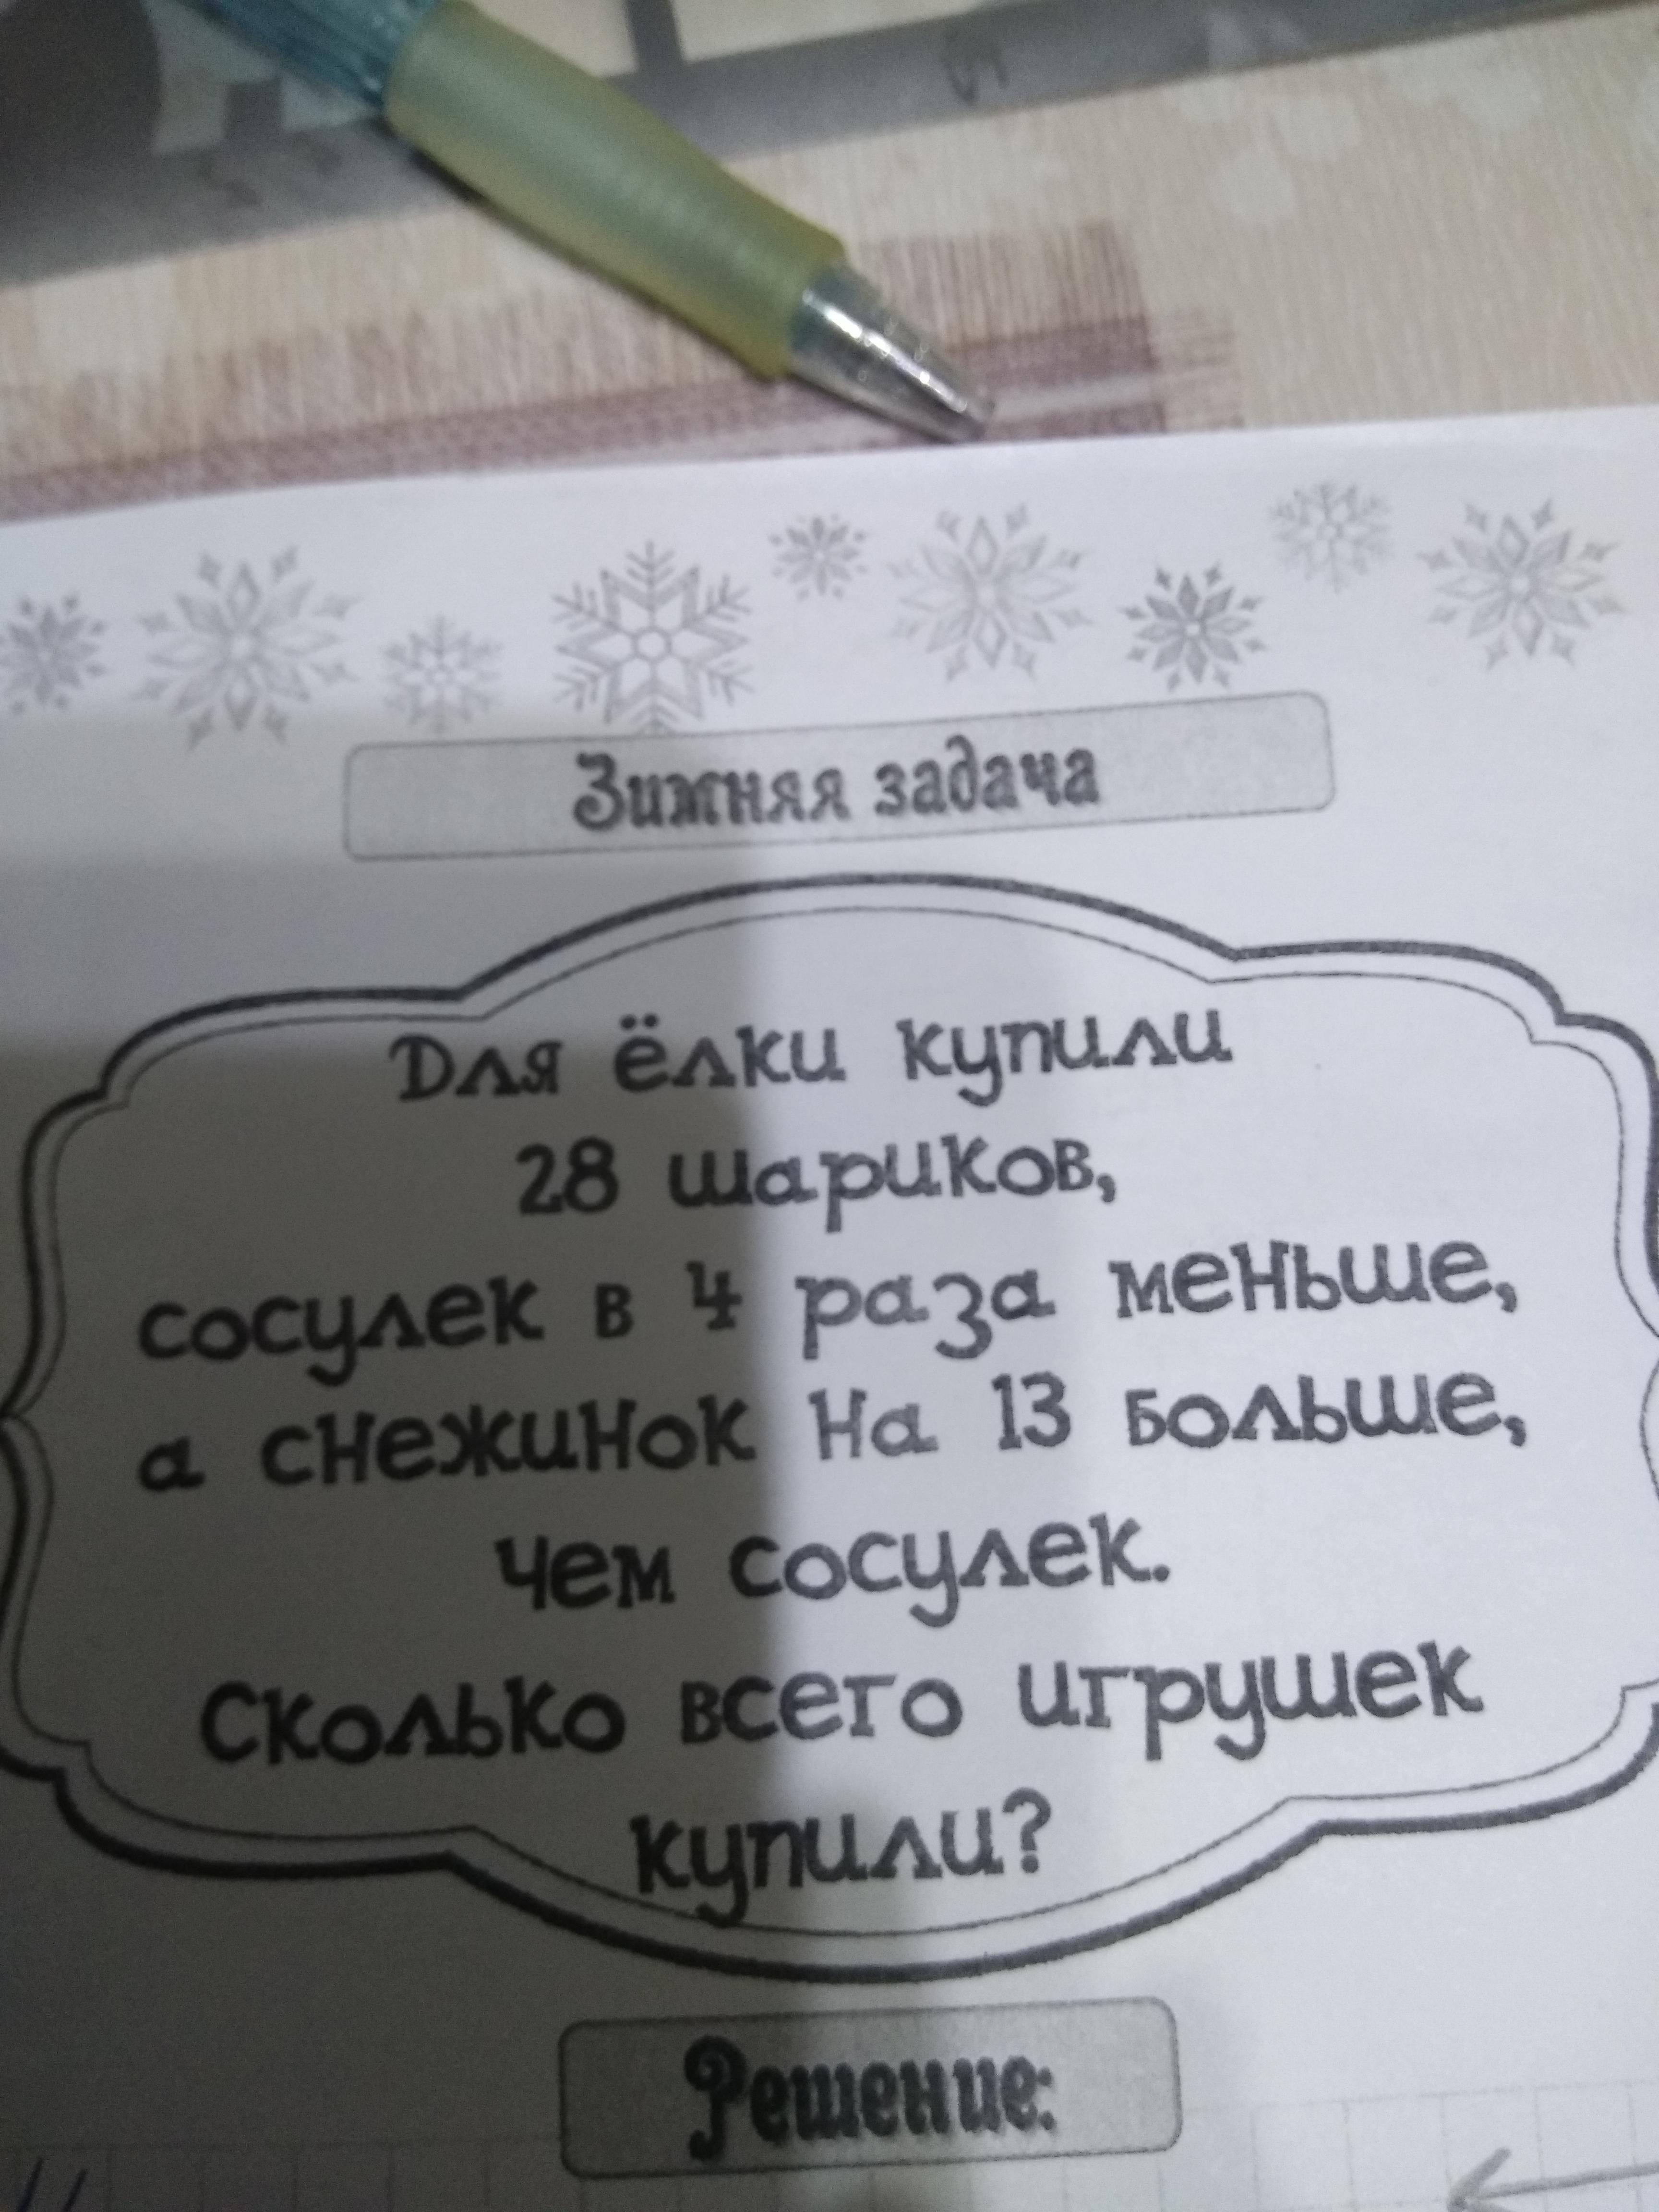 Зимняя задача
Для ёлки купили
28 шариков,
сосулек в 4 раза меньше,
а снежинок на 13 больше,
чем сосулек.
Сколько всего игрушек
купили?
Решение: